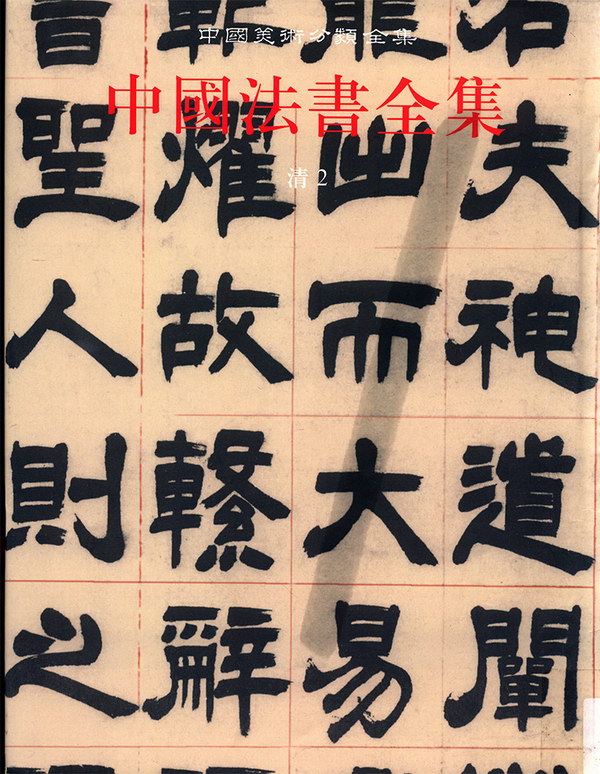 中國美術分類全集
中國法書全集
清 2
夫神道闡
出而大易
耀故繫辭
聖人則之